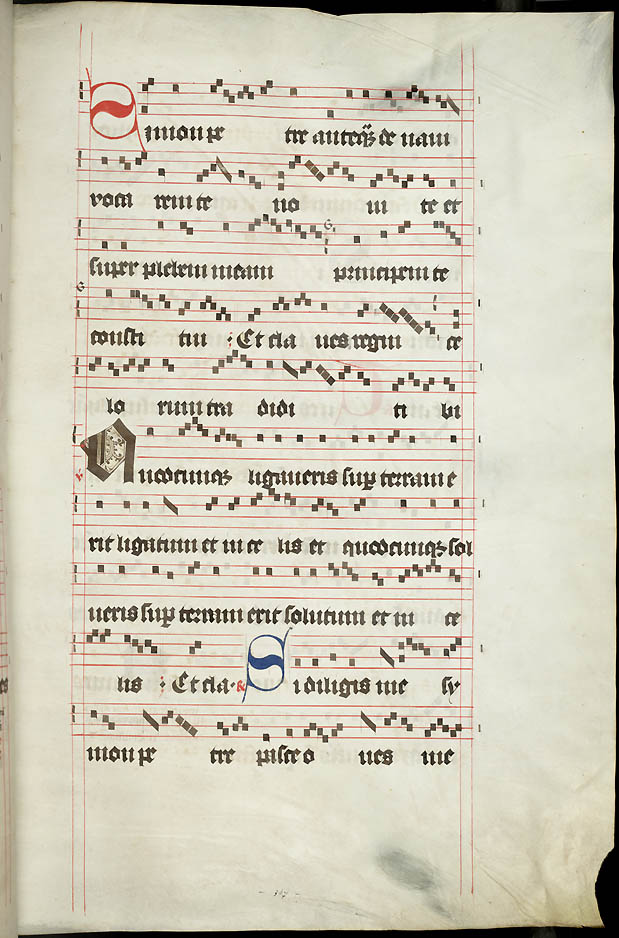 Simon pe tre anteqȝ de naui
voca rem te no ui te et
super plebem meam principem te
consti tui : Et cla ues regni ce
lo rum tra didi ti bi
v Quodcumqȝ ligaueris sup terram e
rit ligatum et in ce lis et quodcumqȝ sol
ueris sup terram erit solutum et in ce
lis : Et cla · R Si diligis me sy
mon pe tre pasce o ues me